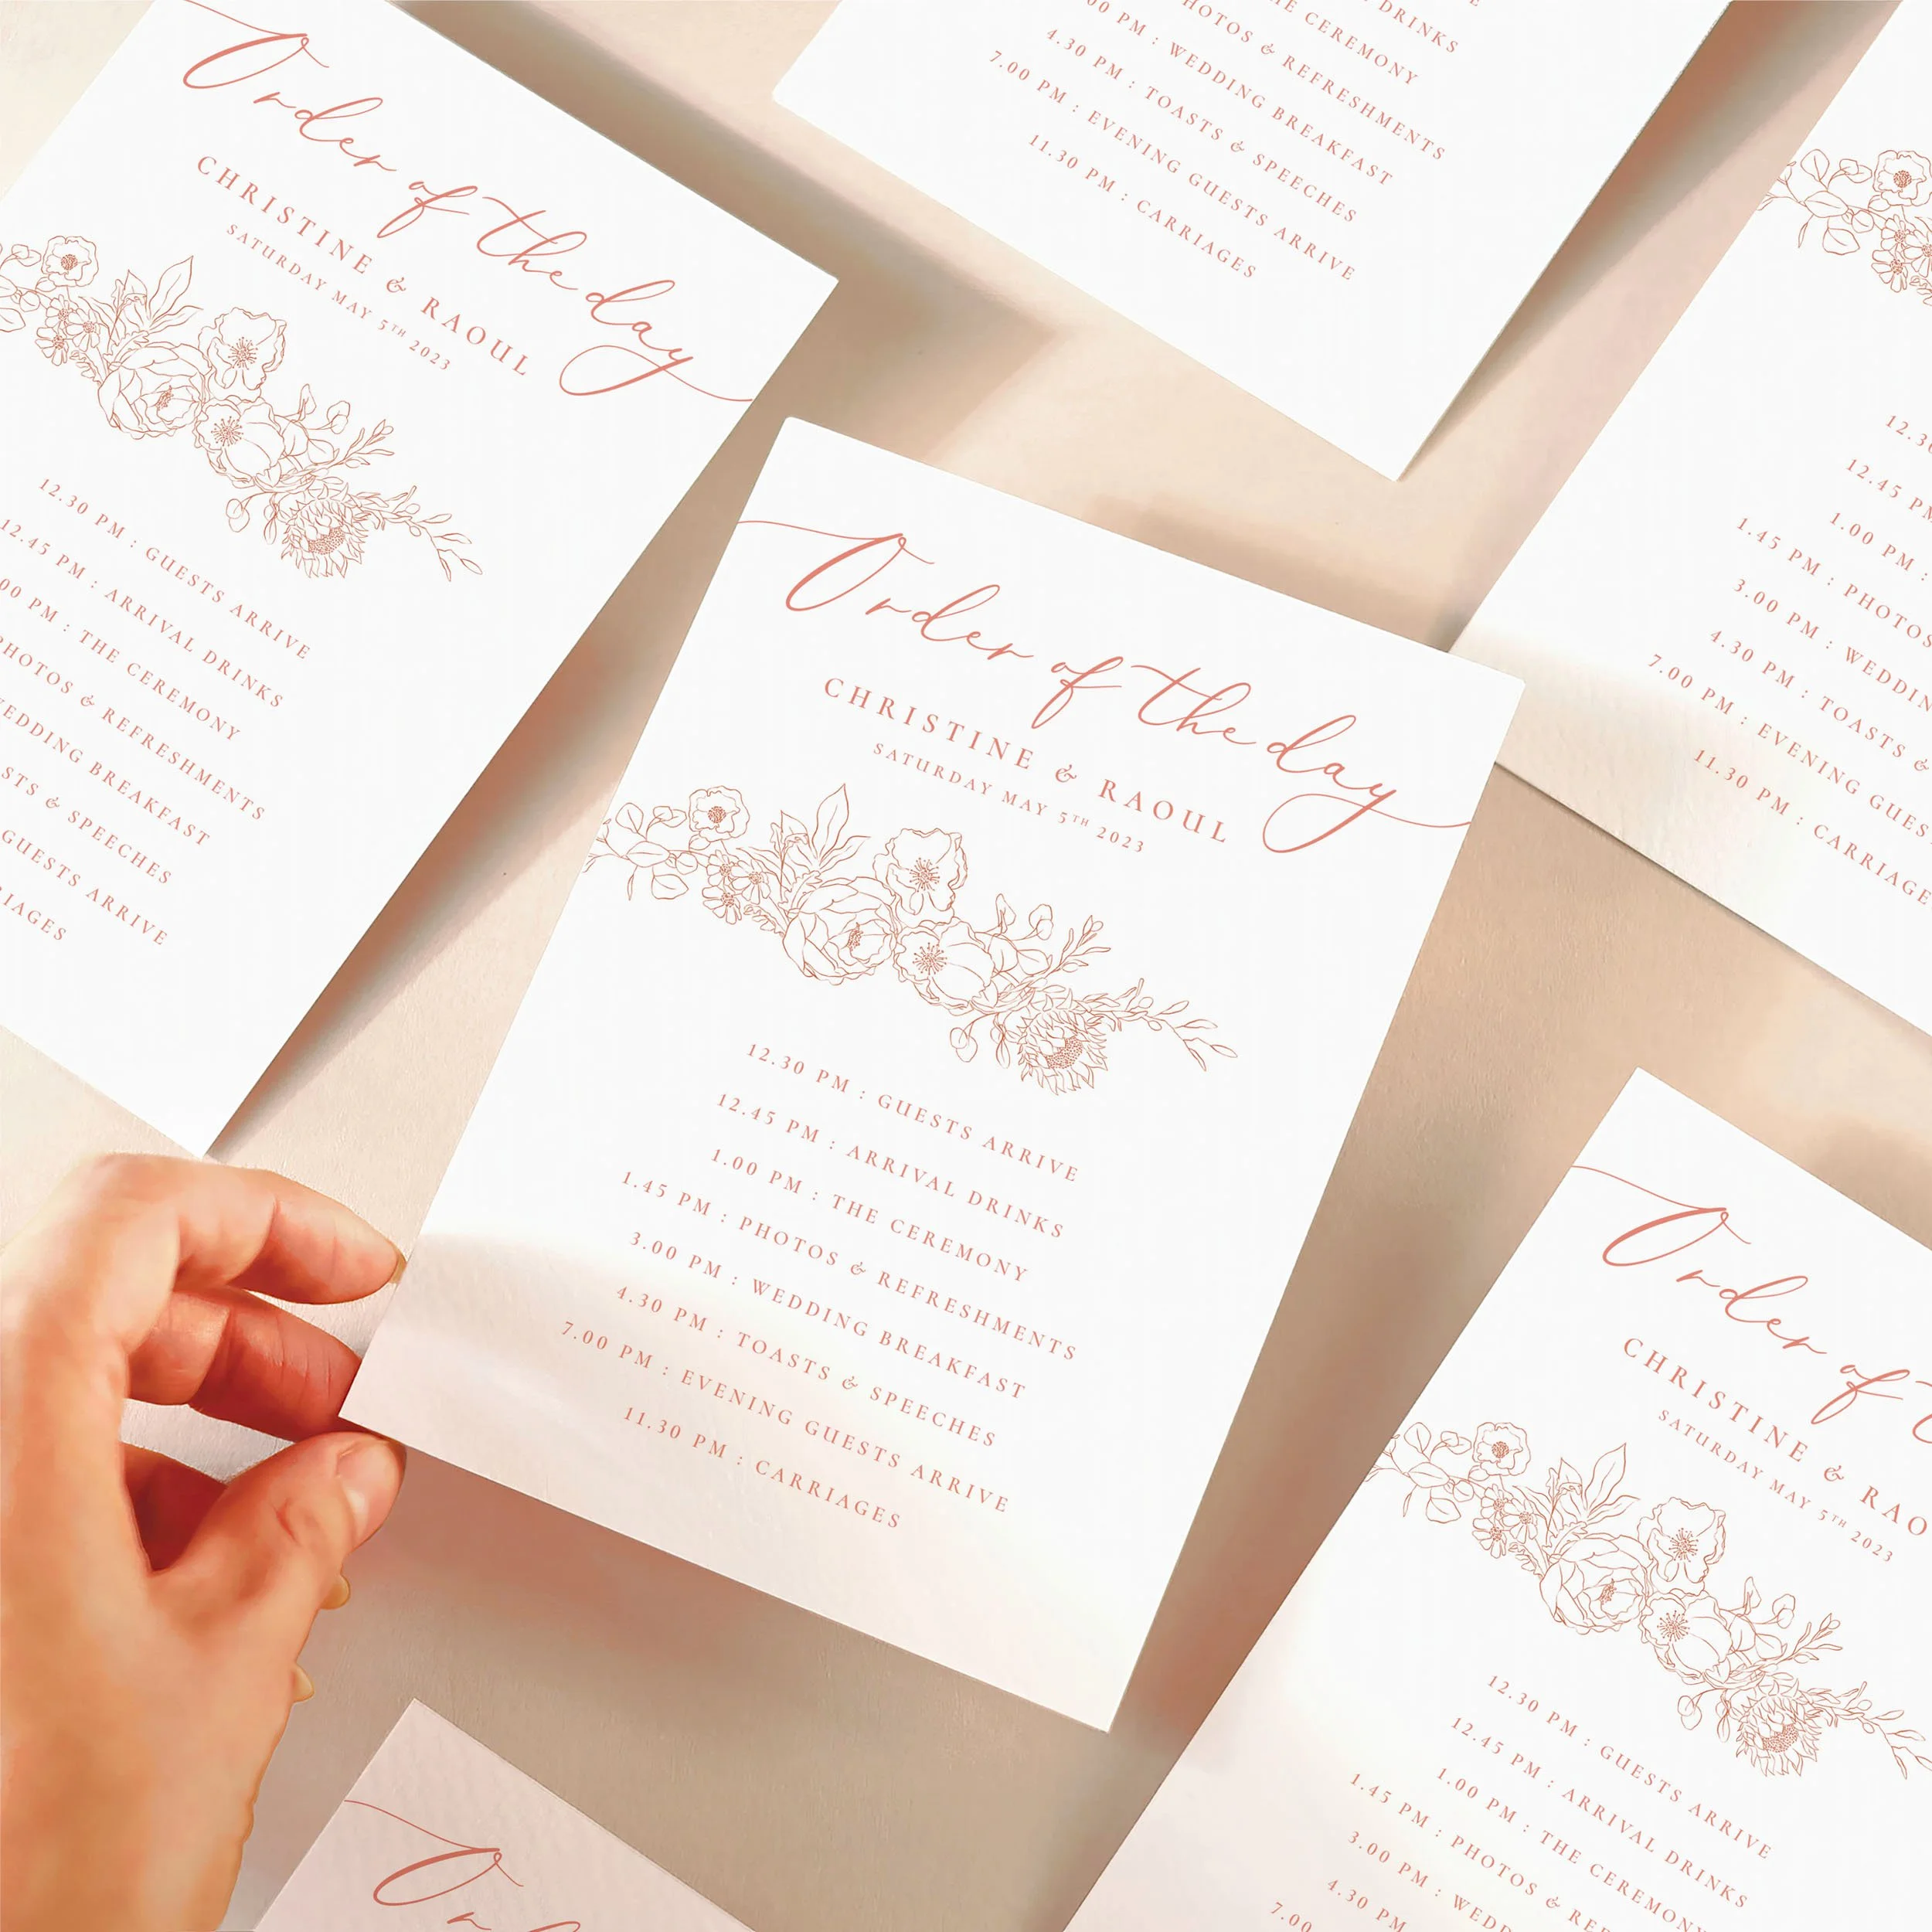 Order of the day
CHRISTINE & RAOUL
SATURDAY MAY 5TH 2023
12.30 PM : GUESTS ARRIVE
12.45 PM : ARRIVAL DRINKS
1.00 PM : THE CEREMONY
PHOTOS & REFRESHMENTS
WEDDING BREAKFAST
& SPEECHES
GUESTS ARRIVE
DRINKS
THE CEREMONY
PHOTOS & REFRESHMENTS
3.00 PM : WEDDING BREAKFAST
4.30 PM : TOASTS & SPEECHES
7.00 PM : EVENING GUESTS ARRIVE
11.30 PM : CARRIAGES
12.45 PM
1.00 PM :
1.45 PM : PHOTOS
3.00 PM : WEDDING
4.30 PM : TOASTS &
7.00 PM : EVENING GUESTS
11.30 PM : CARRIAGES
Order of the day
CHRISTINE & RAOUL
SATURDAY MAY 5TH 2023
12.30 PM : GUESTS ARRIVE
12.45 PM : ARRIVAL DRINKS
1.00 PM : THE CEREMONY
1.45 PM : PHOTOS & REFRESHMENTS
3.00 PM : WEDDING BREAKFAST
4.30 PM : TOASTS & SPEECHES
7.00 PM : EVENING GUESTS ARRIVE
11.30 PM : CARRIAGES
Order of
CHRISTINE & RAO
SATURDAY MAY 5TH 2023
12.30 PM : GUESTS ARRIVE
12.45 PM : ARRIVAL DRINKS
1.00 PM : THE CEREMONY
1.45 PM : PHOTOS & REF
3.00 PM : WEDD
4.30 PM
7.00
Or